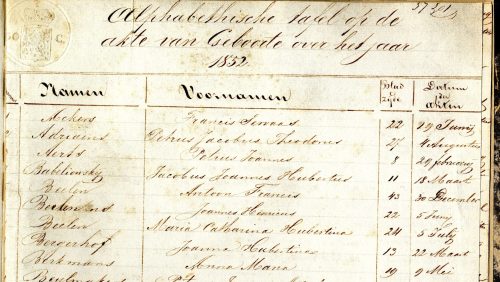 Alphabethische tafel op de
akte van Geboorte over het jaar
1852.
Namen Voornamen Blad & zyde Datum der akten
Francis Servaas 22 29 Juny
Adriaens Petrus Jacobus Theodorus 27 4 Augustus
Aerts Petrus Joannes 8 29 february
Jacobus Joannes Hubertus 11 18 Maart
Beelen Antoon Francis 43 30 December
Joannes Henricus 22 5 Juny
Beelen Maria Catharina Hubertina 24 5 July
Bergerhof Joanna Hubertina 13 22 Maart
Berkmans Anna Maria 19 9 Mei